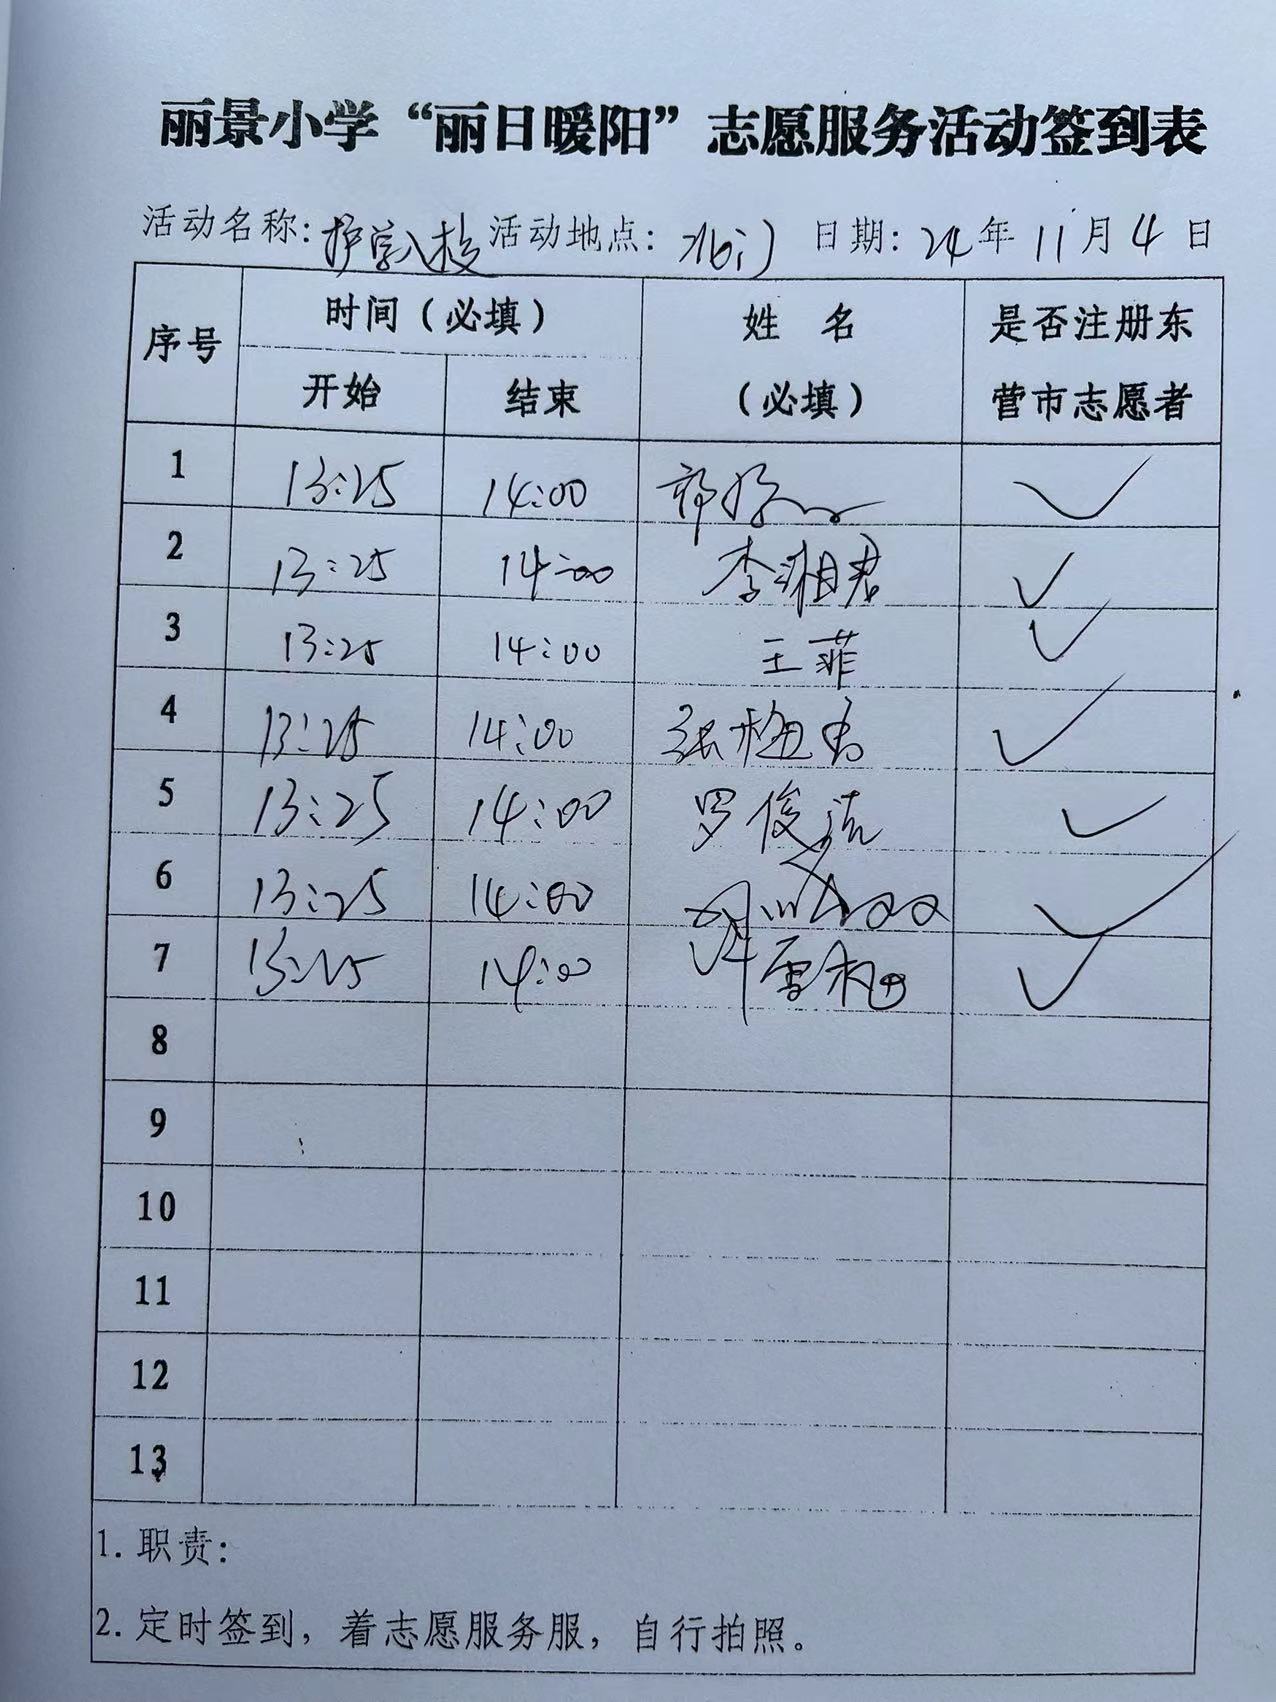 丽景小学“丽日暖阳”志愿服务活动签到表
活动名称:护学入校 活动地点:北门 日期:24年11月4日
序号 时间(必填) 姓 名 是否注册东
开始 结束 (必填) 营市志愿者
1 13:25 14:00 ✓
2 13:25 14:00 李湘君 ✓
3 13:25 14:00 王菲 ✓
4 13:25 14:00 ✓
5 13:25 14:00 罗俊洁 ✓
6 13:25 14:00 ✓
7 13:25 14:00 ✓
8
9
10
11
12
13
1. 职责:
2. 定时签到，着志愿服务服，自行拍照。